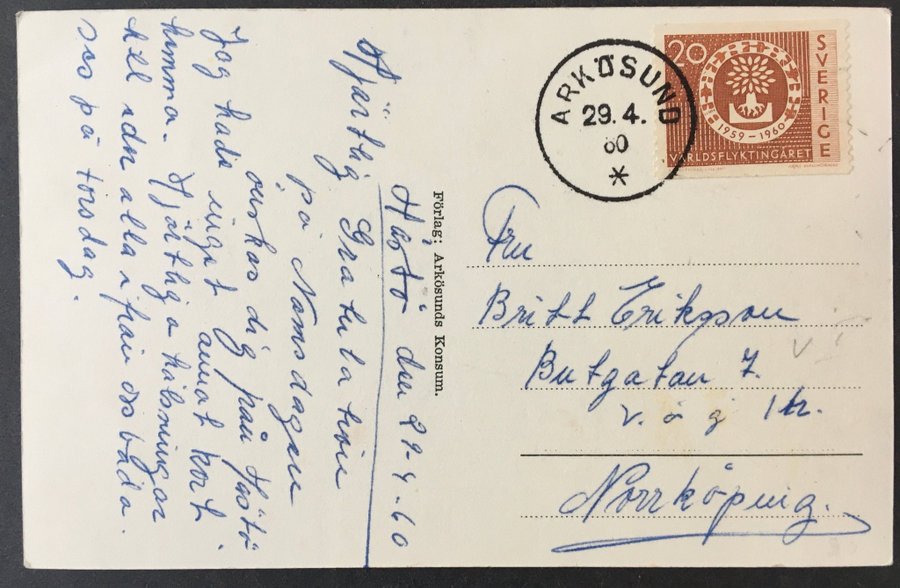 Hästö den 29-4.60
Hjärtlig Gratulation
på Namsdagen
önskas dig från Hästö
Jag hade inget annat kort.
hemma. Hjärtliga hälsningar
till eder alla ifrån oss båda.
ses på torsdag.
Förlag: Arkösunds Konsum.
ARKÖSUND
29.4.
60
*
20
SVERIGE
1959-1960
VÄRLDSFLYKTINGÅRET
Fru
Britt Eriksson
Butgatan 7.
v. ö g 1tr.
Norrköping.